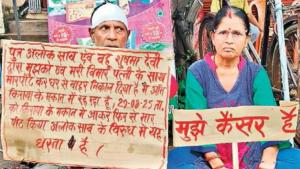 पुत्र अलोक साव एवं बहु सुषमा देवी
द्वारा मुझको एवं मेरी बिमार पत्नी के साथ
मारपीट कर घर से बाहर निकाल दिया है मैं अभी
किराया के मकान में रह रहा हूँ, 29-08-25 ता.
को किराया के मकान में आकर फिर से मार
पीट किया अलोक साव के विरुध में यह
धरना है।
मुझे कैंसर है